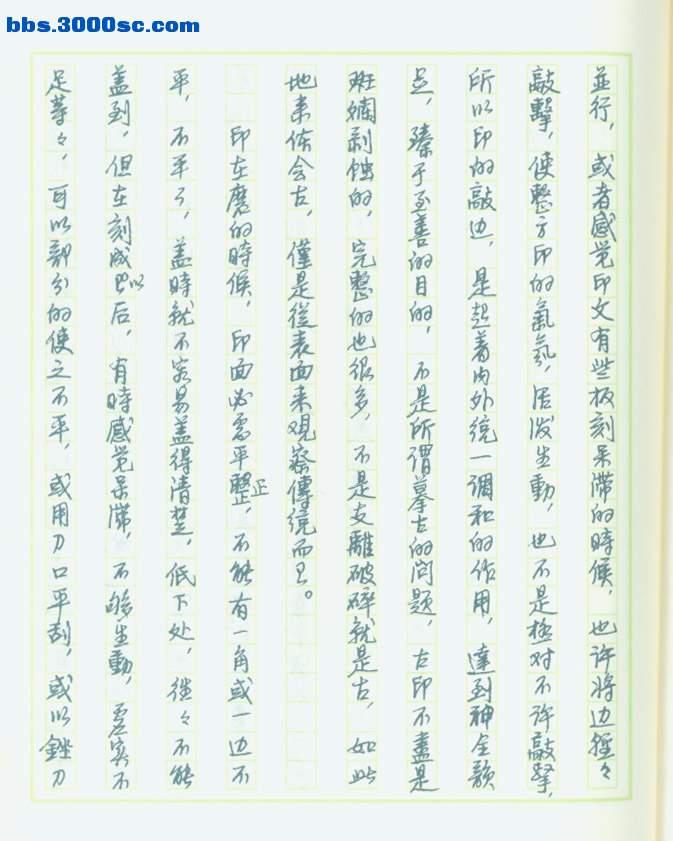 bbs.3000sc.com
並行，或者感觉印文有些板刻呆滞的時候，也许将边轻々
敲擊，使整方印的氣氛，活泼生動，也不是绝对不许敲擊，
所以印的敲边，是起着内外统一调和的作用，達到神全韻
足，臻于至善的目的，不是所謂摹古的问题，古印不盡是
斑斕剥蚀的，完整的也很多，不是支離破碎就是古，如此
地来体会古，僅是從表面来观察傳统而已。
印在磨的時候，印面必需平整正，不能有一角或一边不
平，不平了，盖時就不容易盖得清楚，低下处，往々不能
盖到，但在刻成以后，有時感觉呆滞，不够生動，虚实不
足等々，可以部分的使之不平，或用刀口平刮，或以銼刀